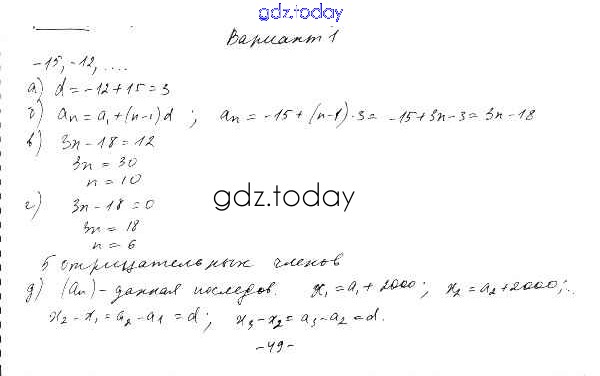 gdz.today
Вариант 1
-15, -12, ....
а) d = -12+15 = 3
б) an = a1+(n-1)d ; an = -15+(n-1)·3 = -15+3n-3 = 3n-18
в) 3n-18=12
3n = 30
n = 10
г) 3n-18=0
3n = 18
n = 6
gdz.today
5 отрицательных членов
д) (an) - данная последов. x1 = a1+2000; x2 = a2+2000;..
x2-x1 = a2-a1 = d; x3-x2 = a3-a2 = d.
-49-